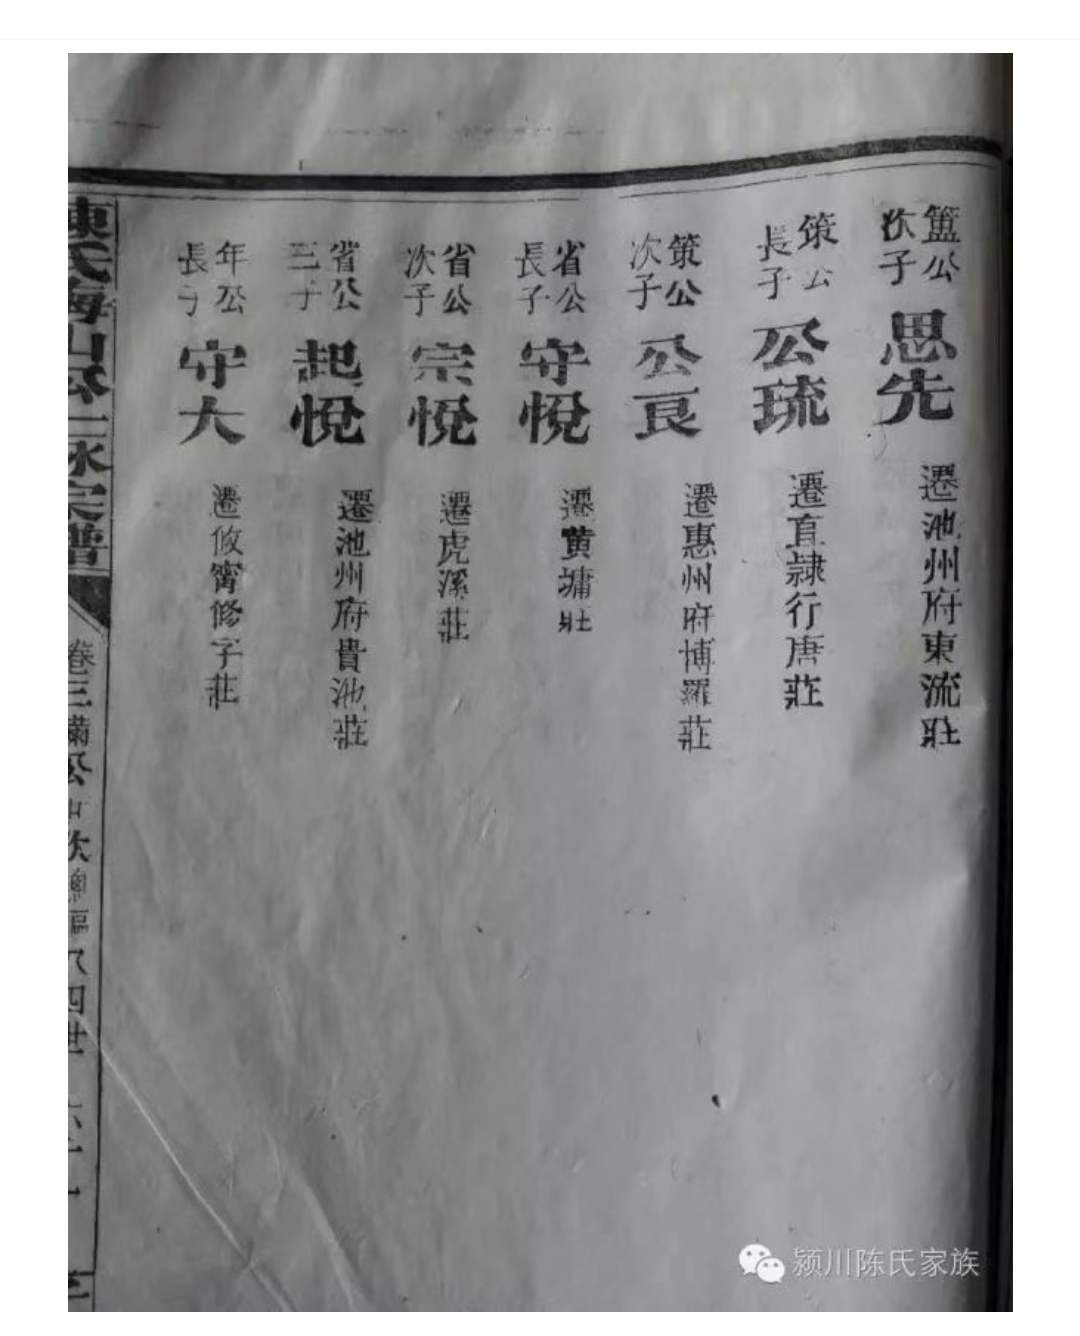 簠公
次子
思先
遷池州府東流壯
策公
長子
公琉
遷直隷行唐莊
策公
次子
公良
遷惠州府博羅莊
省公
長子
守悅
遷黄墉壯
省公
次子
宗悅
遷虎溪莊
省公
三子
起悅
遷池州府貴池莊
年公
長子
守大
遷攸寗修字莊
陳氏海山公
宗譜
卷三
公
四世
颍川陈氏家族